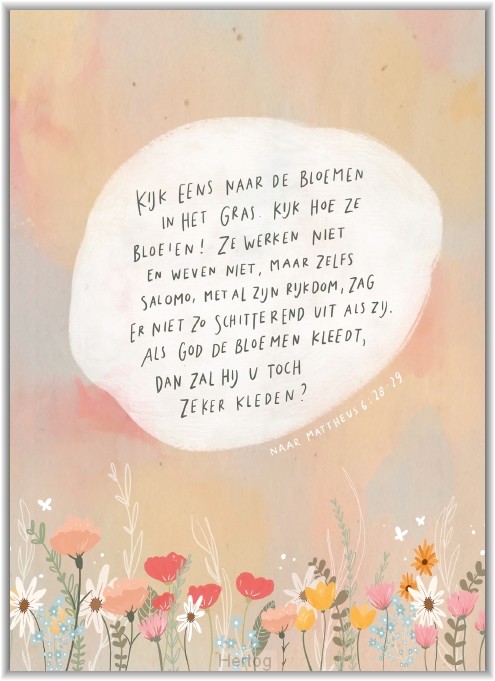 Kijk eens naar de bloemen
in het gras. Kijk hoe ze
bloeien! Ze werken niet
en weven niet, maar zelfs
Salomo, met al zijn rijkdom, zag
er niet zo schitterend uit als zij.
Als God de bloemen kleedt,
dan zal Hij u toch
zeker kleden?
Naar Mattheus 6:28-29
Hertog